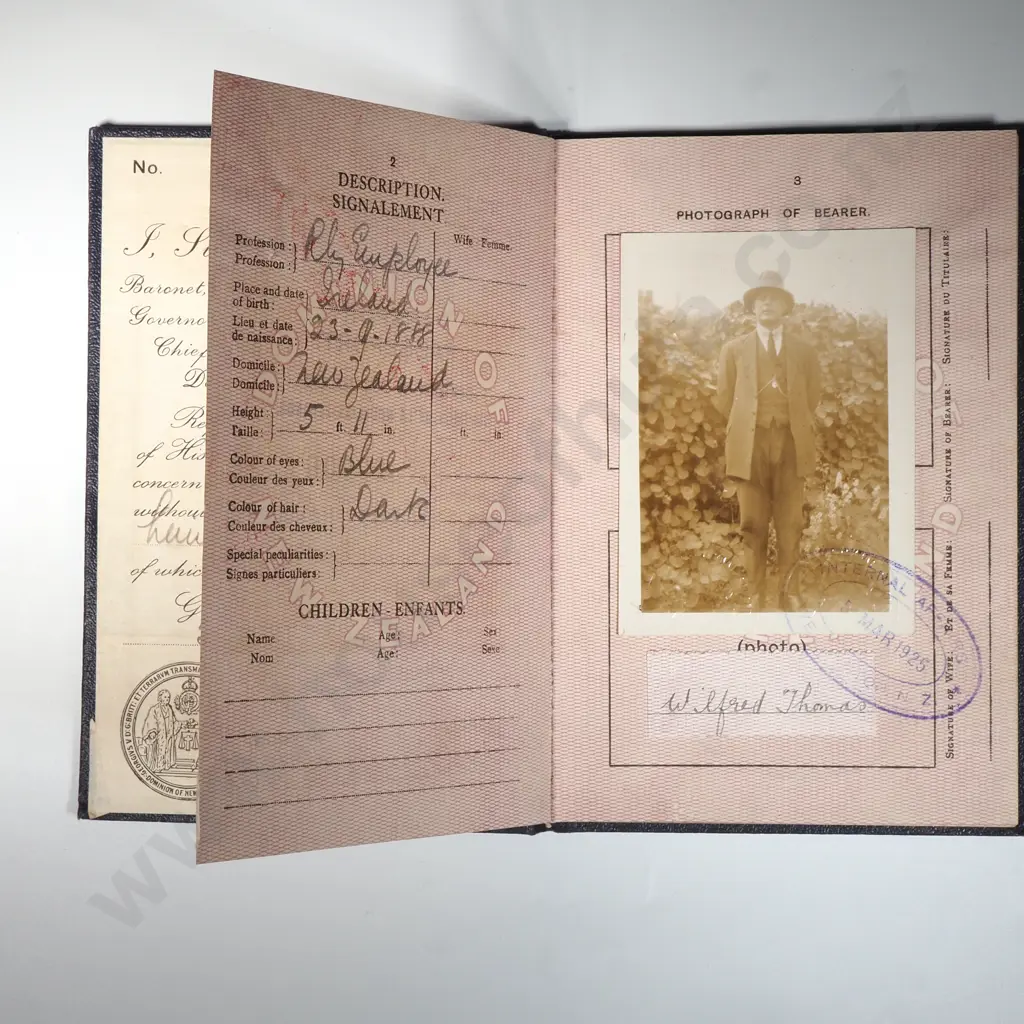 No.
I, S
Baronet,
Governo
Chief
D
Re
of His
concern
withou
of whic
G
2
DESCRIPTION.
SIGNALEMENT
Wife Femme.
Profession: Rly Employee
Profession:
Place and date of birth: Ireland
Lieu et date de naissance: 23-9-1888
Domicile: New Zealand
Domicile:
Height: 5 ft. 11 in. ft. in.
Taille:
Colour of eyes: Blue
Couleur des yeux:
Colour of hair: Dark
Couleur des cheveux:
Special peculiarities:
Signes particuliers:
CHILDREN - ENFANTS.
Name Age: Sex
Nom Age: Sexe
NEW ZEALAND
3
PHOTOGRAPH OF BEARER.
(photo)
Wilfred Thomas
INTERNAL AF
MAR 1925
N.Z.
SIGNATURE OF BEARER: SIGNATURE DU TITULAIRE:
SIGNATURE OF WIFE: ET DE SA FEMME: